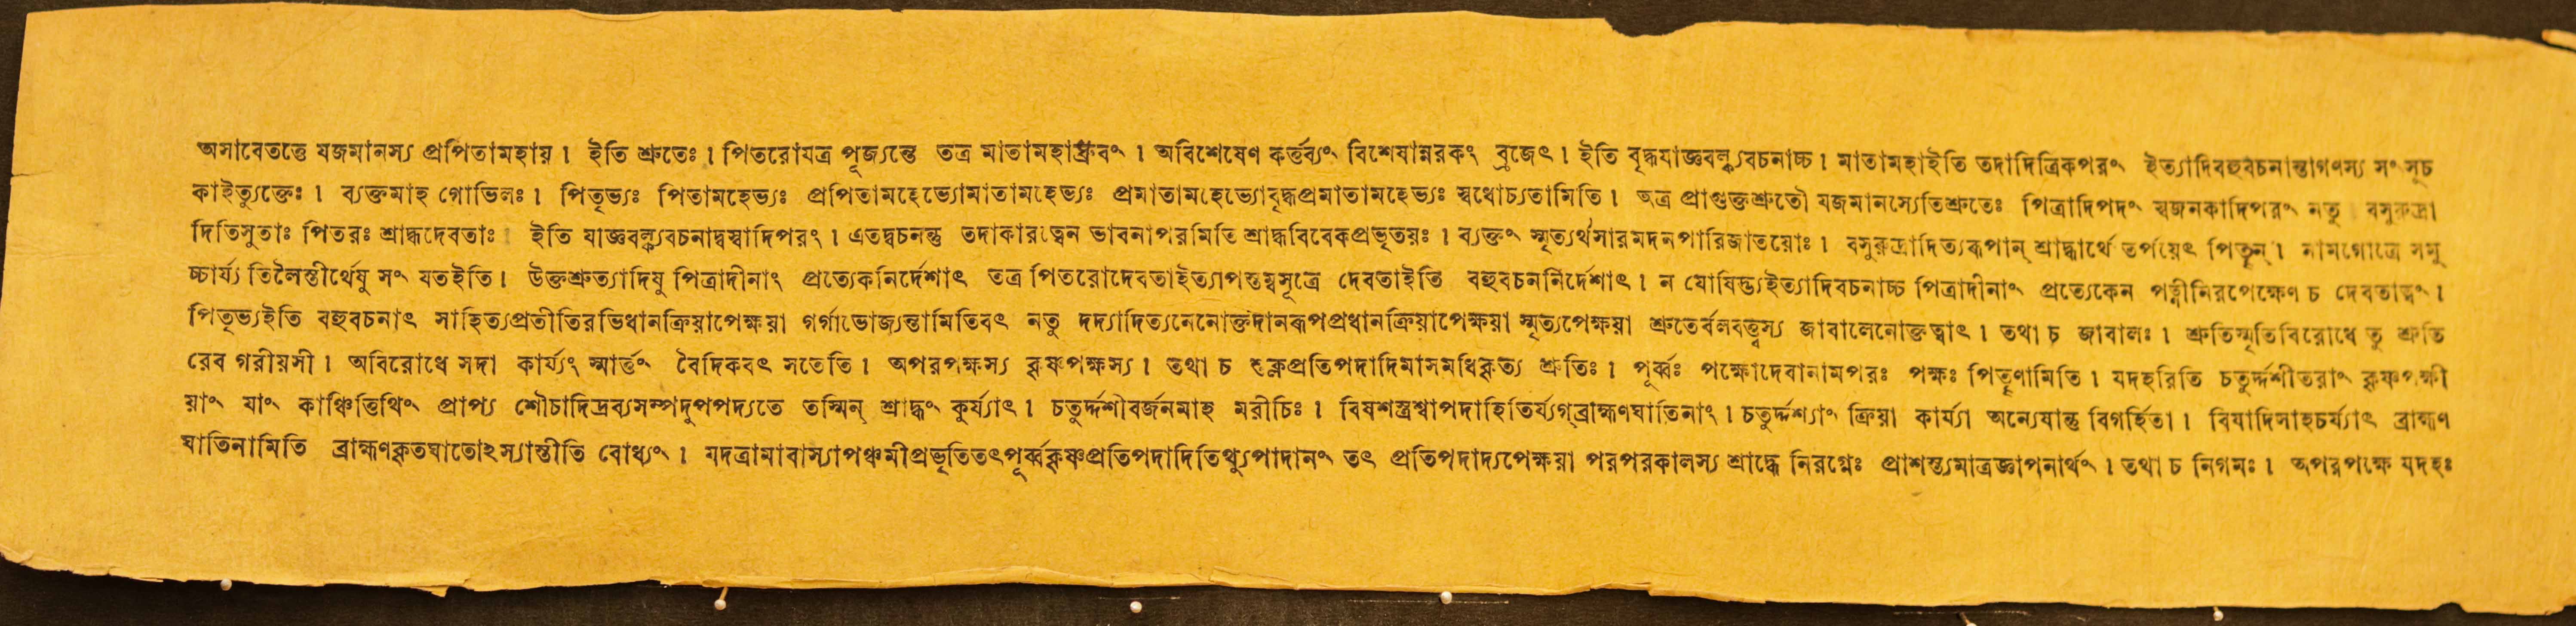 অসাবেতত্তে যজমানস্য প্রপিতামহায় । ইতি শ্রুতেঃ । পিতরোযত্র পূজ্যন্তে তত্র মাতামহাধ্রুবং । অবিশেষেণ কর্ত্তব্যং বিশেষান্নরকং ব্রজেৎ । ইতি বৃদ্ধযাজ্ঞবল্ক্যবচনাচ্চ । মাতামহাইতি তদাদিত্রিকপরং ইত্যাদিবহুবচনান্তাগণস্য সংসূচ
কাইত্যুক্তেঃ । ব্যক্তমাহ গোভিলঃ । পিতৃভ্যঃ পিতামহেভ্যঃ প্রপিতামহেভ্যোমাতামহেভ্যঃ প্রমাতামহেভ্যোবৃদ্ধপ্রমাতামহেভ্যঃ স্বধোচ্যতামিতি । অত্র প্রাগুক্তশ্রুতৌ যজমানস্যেতিশ্রুতেঃ পিত্রাদিপদং স্বজনকাদিপরং নতু বসুরুদ্রা
দিতিসুতাঃ পিতরঃ শ্রাদ্ধদেবতাঃ ইতি যাজ্ঞবল্ক্যবচনাদ্বস্বাদিপরং । এতদ্বচনন্তু তদাকারত্বেন ভাবনাপরমিতি শ্রাদ্ধবিবেকপ্রভৃতয়ঃ । ব্যক্তং স্মৃত্যর্থসারমদনপারিজাতয়োঃ । বসুরুদ্রাদিত্যরূপান্ শ্রাদ্ধার্থে তর্পয়েৎ পিতৄন্ । নামগোত্রে সমু
চ্চার্য্য তিলৈস্তীর্থেষু সং যতইতি । উক্তশ্রুত্যাদিষু পিত্রাদীনাং প্রত্যেকনির্দেশাৎ তত্র পিতরোদেবতাইত্যাপস্তম্বসূত্রে দেবতাইতি বহুবচননির্দেশাৎ । ন যোষিদ্ভ্যইত্যাদিবচনাচ্চ পিত্রাদীনাং প্রত্যেকেন পত্নীনিরপেক্ষেণ চ দেবতাত্বং ।
পিতৃভ্যইতি বহুবচনাৎ সাহিত্যপ্রতীতিরভিধানক্রিয়াপেক্ষয়া গর্গাভোজ্যন্তামিতিবৎ নতু দদ্যাদিত্যনেনোক্তদানরূপপ্রধানক্রিয়াপেক্ষয়া স্মৃত্যপেক্ষয়া শ্রুতের্বলবত্ত্বস্য জাবালেনোক্তত্বাৎ । তথা চ জাবালঃ । শ্রুতিস্মৃতিবিরোধে তু শ্রুতি
রেব গরীয়সী । অবিরোধে সদা কার্য্যং স্মার্ত্তং বৈদিকবৎ সতেতি । অপরপক্ষস্য কৃষ্ণপক্ষস্য । তথা চ শুক্লপ্রতিপদাদিমাসমধিকৃত্য শ্রুতিঃ । পূর্ব্বঃ পক্ষোদেবানামপরঃ পক্ষঃ পিতৄণামিতি । যদহরিতি চতুর্দ্দশীতরাং কৃষ্ণপক্ষী
য়াং যাং কাঞ্চিত্তিথিং প্রাপ্য শৌচাদিদ্রব্যসম্পদুপপদ্যতে তস্মিন্ শ্রাদ্ধং কুর্য্যাৎ । চতুর্দ্দশীবর্জনমাহ মরীচিঃ । বিষশস্ত্রশ্বাপদাহিতির্য্যগ্ব্রাহ্মণঘাতিনাং । চতুর্দ্দশ্যাং ক্রিয়া কার্য্যা অন্যেষান্তু বিগর্হিতা । বিষাদিসাহচর্য্যাৎ ব্রাহ্মণ
ঘাতিনামিতি ব্রাহ্মণকৃতঘাতোঽস্যাস্তীতি বোধ্যং । যদত্রামাবাস্যাপঞ্চমীপ্রভৃতিতৎপূর্ব্বকৃষ্ণপ্রতিপদাদিতিথ্যুপাদানং তৎ প্রতিপদাদ্যপেক্ষয়া পরপরকালস্য শ্রাদ্ধে নিরগ্নেঃ প্রাশস্ত্যমাত্রজ্ঞাপনার্থং । তথা চ নিগমঃ । অপরপক্ষে যদহঃ